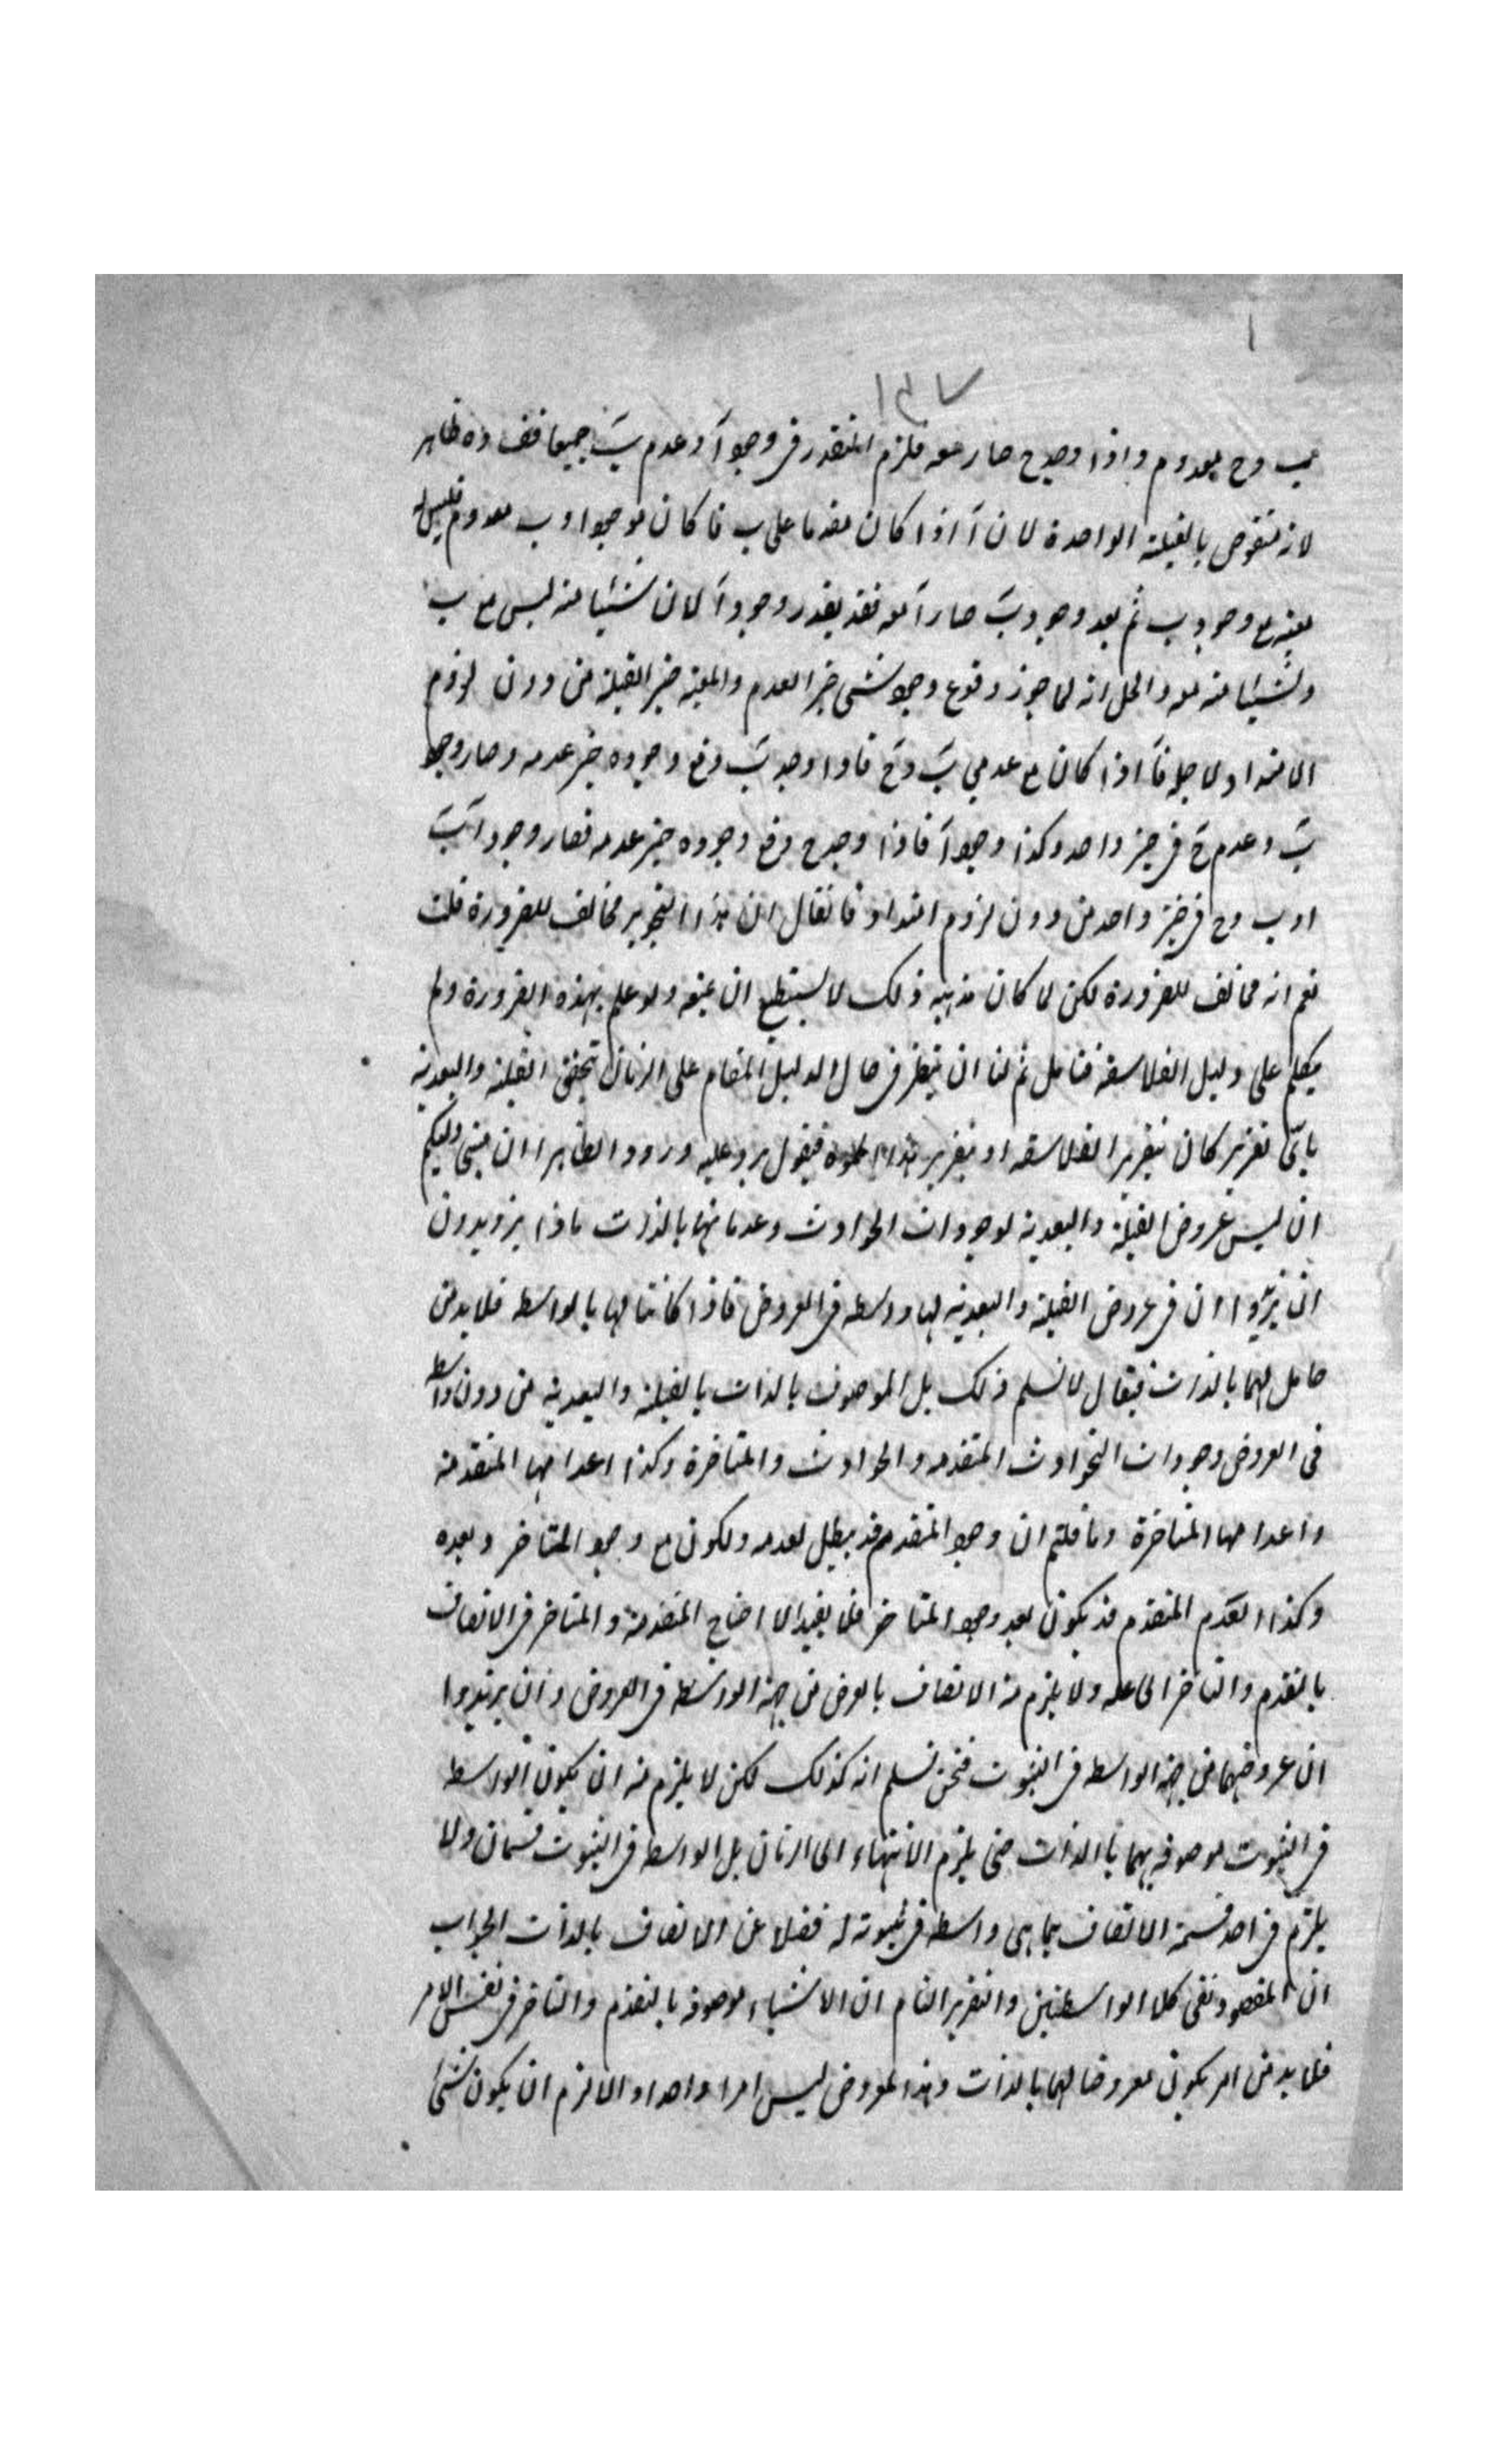 ب وح معدوم واذا وجد ح صار معه فلزم التقدر فى وجود آ وعدم ب جميعا فف ده ظاهر
لانه منقوض بالقبلية الواحدة لان آ اذا كان مقدما على ب فا كان موجودا وب معدوم فليس له
معية مع وجود ب ثم بعد وجود ب صار آ معه فقد يقدر وجود آ لان شيئا منه ليس مع ب
وشيئا منه معه والحل انه لما جوز وقوع وجود شئ حيز العدم والمعية حيز القبلية من دون لزوم
الامتداد ولا حله فآ اذا كان مع عدمي ب وح فاذا وجد ب وقع وجوده حيز عدمه وصار وجود
ب وعدم ح فى حيز واحد وكذا وجود آ فاذا وجد ح وقع وجوده حيز عدمه فصار وجود آ ب
او ب وح فى حيز واحد من دون لزوم امتداد فا نقال ان هذا التجويز مخالف للضرورة قلت
نعم انه مخالف للضرورة لكن لما كان مذهبه ذلك لا يستطيع ان يمنعه ولو علم بهذه الضرورة ولم
يتكلم على دليل الفلاسفة فتامل ثم لنا ان ننظر فى حال الدليل المقام على الزمان بتحقق القبلية والبعدية
باى تقرير كان بتقرير الفلاسفه او بتقرير هذا فيقول يرد عليه ورودا ظاهرا ان مبنى دليلكم
ان ليس عروض القبلية والبعدية لوجودات الحوادث وعدماتها بالذات ماذا يريدون
ان يريدوا ان فى عروض القبلية والبعدية لها واسطه فى العروض فاذا كانتا لها بالواسطه فلا بد من
حامل لهما بالذات فيقال لا نسلم ذلك بل الموصوف بالذات بالقبلية والبعدية من دون واسطه
فى العروض وجودات الحوادث المتقدمه والحوادث والمتاخرة وكذا اعدامها المتقدمة
واعدامها المتاخرة وما قلتم ان وجود المتقدم قد يبطل لعدمه ويكون مع وجود المتاخر وبعده
وكذا العدم المتقدم قد يكون بعد وجود المتاخر فلا يفيد الا احتياج المتقدمة والمتاخر فى الاتصاف
بالتقدم والتاخر الى عله ولا يلزم منه الاتصاف بالعرض من جهة الواسطه فى العروض وان يريدوا
ان عروضهما من جهة الواسطه فى الثبوت فنحن نسلم انه كذلك لكن لا يلزم منه ان يكون الواسطه
فى الثبوت موصوفه بهما بالذات حتى يلزم الانتهاء الى الزمان بل الواسطه فى الثبوت قسمان ولا
يلزم فى احد قسمه الاتصاف بما هى واسطه فى ثبوته له فضلا عن الاتصاف بالذات الجواب
ان المقصود نفى كلا الواسطتين والتقرير التام ان الاشياء موصوفه بالتقدم والتاخر فى نفس الامر
فلا بد من امر يكون معروضا لهما بالذات وهذا المعروض ليس امرا واحدا والا لزم ان يكون شئ